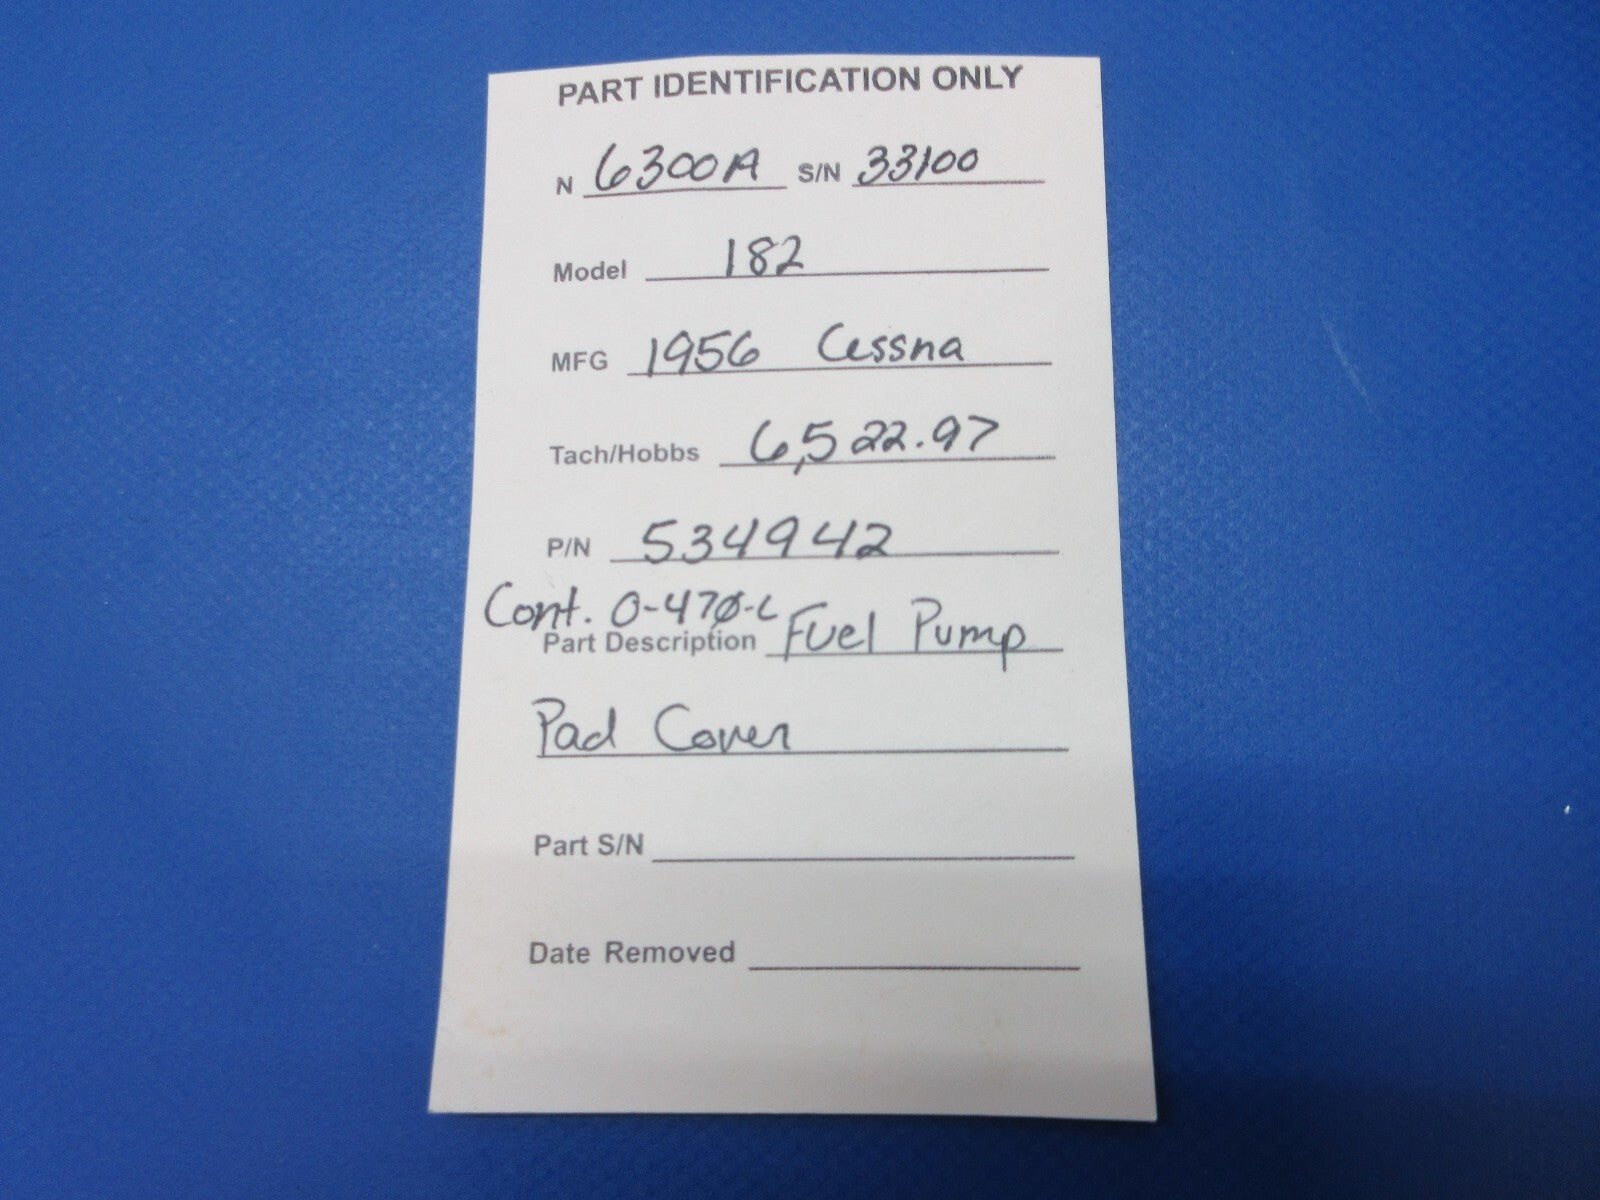 PART IDENTIFICATION ONLY
N 6300A S/N 33100
Model 182
MFG 1956 Cessna
Tach/Hobbs 6,522.97
P/N 534942
Cont. O-470-L
Part Description Fuel Pump
Pad Cover
Part S/N
Date Removed